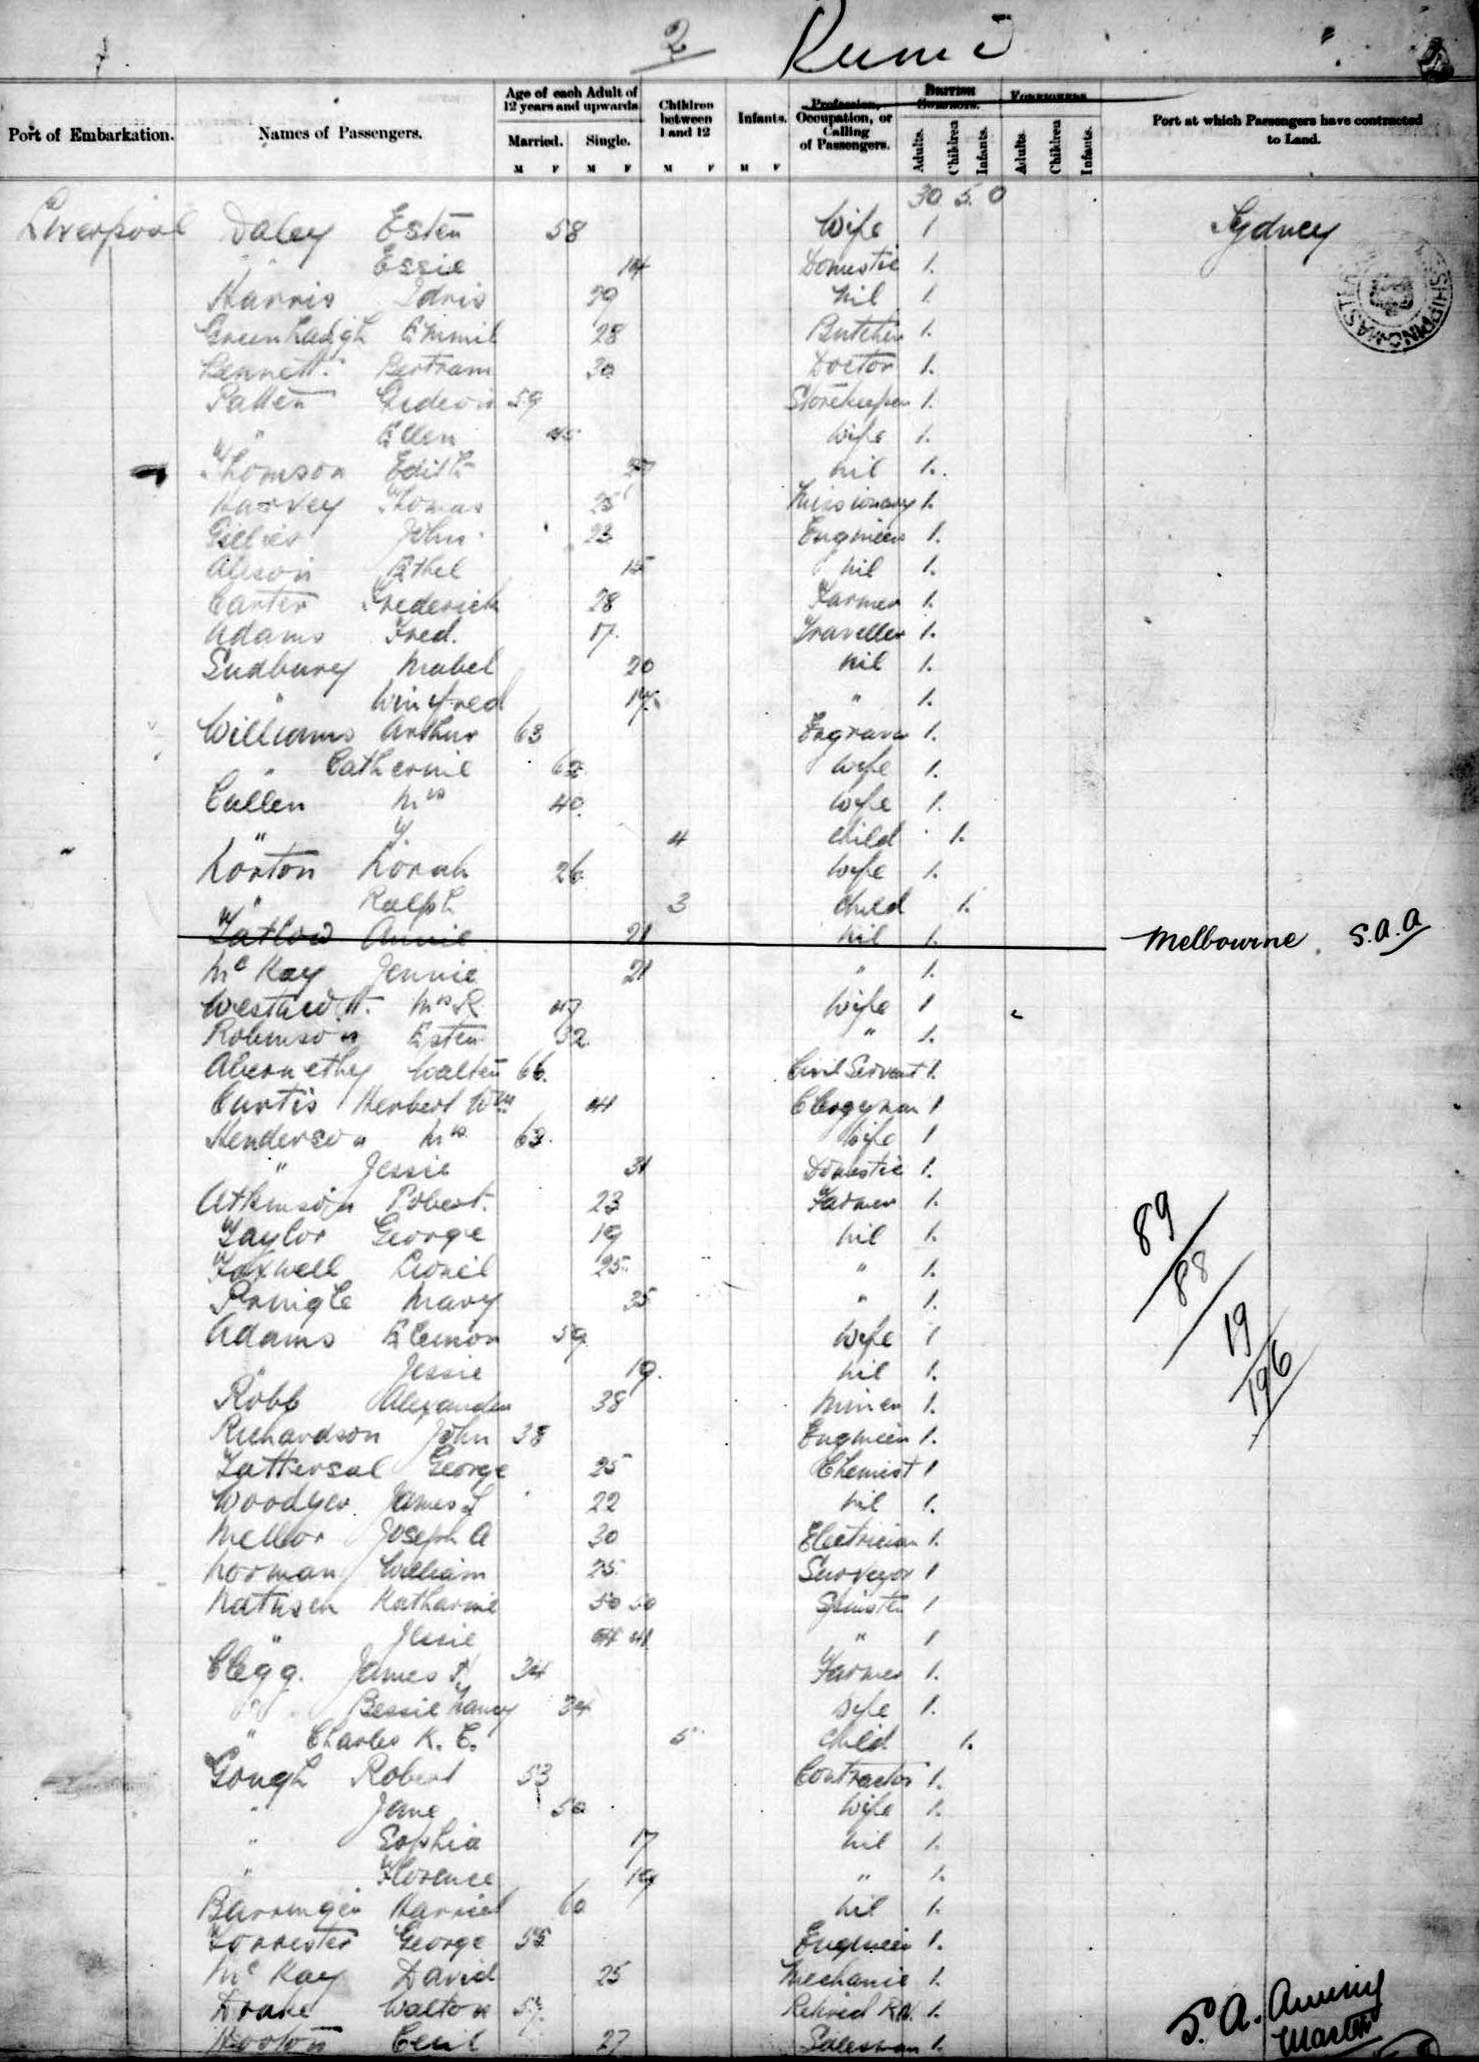 2 Runic
Port of Embarkation. Names of Passengers. Age of each Adult of 12 years and upwards Married. Single. Children between 1 and 12 Infants. Profession, Occupation, or Calling of Passengers. British Adults. Children Infants. Foreigners Adults. Children Infants. Port at which Passengers have contracted to Land.
M F M F M F M F
30 5 0
Liverpool Daley 58 Wife 1 Sydney
" Essie 14 Domestic 1.
Harris Idris 29 nil 1.
Greenhalgh 28 Butcher 1.
Bennett. Bertram 30 Doctor 1.
Patten Gideon 59 Storekeeper 1.
" Ellen 45 wife 1.
Thomson Edith nil 1.
Harvey Thomas 25 Missionary 1.
Gillies John 23 Engineer 1.
Alison Ethel 15 nil 1.
Carter Frederick 28 Farmer 1.
Adams Fred. 17. Traveller 1.
Sudbury Mabel 20 nil 1.
" Winifred 14. " 1.
Williams Arthur 63 Engraver 1.
" Catherine 62 wife 1.
Cullen Mrs 40. wife 1.
" Y 4 child 1.
Norton Norah 26 wife 1.
" Ralph 3 child 1.
Tatlow Annie 21 nil 1. Melbourne S.A.A
McKay Jennie 21 " 1.
Mrs R. 47 Wife 1
Robinson 32 " 1.
Abernethy Walter 66. Civil Servant 1.
Curtis Herbert Wm 41 Clergyman 1
Henderson Mrs 63. wife 1
" Jessie 31 Domestic 1.
Atkinson Robert. 23 Farmer 1.
Taylor George 19 nil 1.
Foxwell Lionel 25 " 1.
Pringle Mary 35 " 1.
Adams 59 Wife 1
" Jessie 19. nil 1.
Robb Alexander 38 Miner 1.
Richardson John 38 Engineer 1.
Tattersal George 25 Chemist 1
Woodger James L 22 nil 1.
Mellor Joseph A 30 Electrician 1.
Norman William 25 Surveyor 1
Katharine 50 50 Spinster 1
" Jessie 41 41 " 1
Clegg. James H 34 Farmer 1.
" Bessie Nancy 34 wife 1.
" Charles K. C. 5 child 1.
Gough Robert 53 Contractor 1.
" Jane 50 wife 1.
" Sophia 17 nil 1.
" Florence 19 " 1.
Harriet 60 nil 1.
Forrester George 55 Engineer 1.
McKay David 25 Mechanic 1.
Drake Walton 57. Retired R.N. 1.
Cecil 27 Salesman 1.
89
88
19
196
SHIPPING MAST
Master